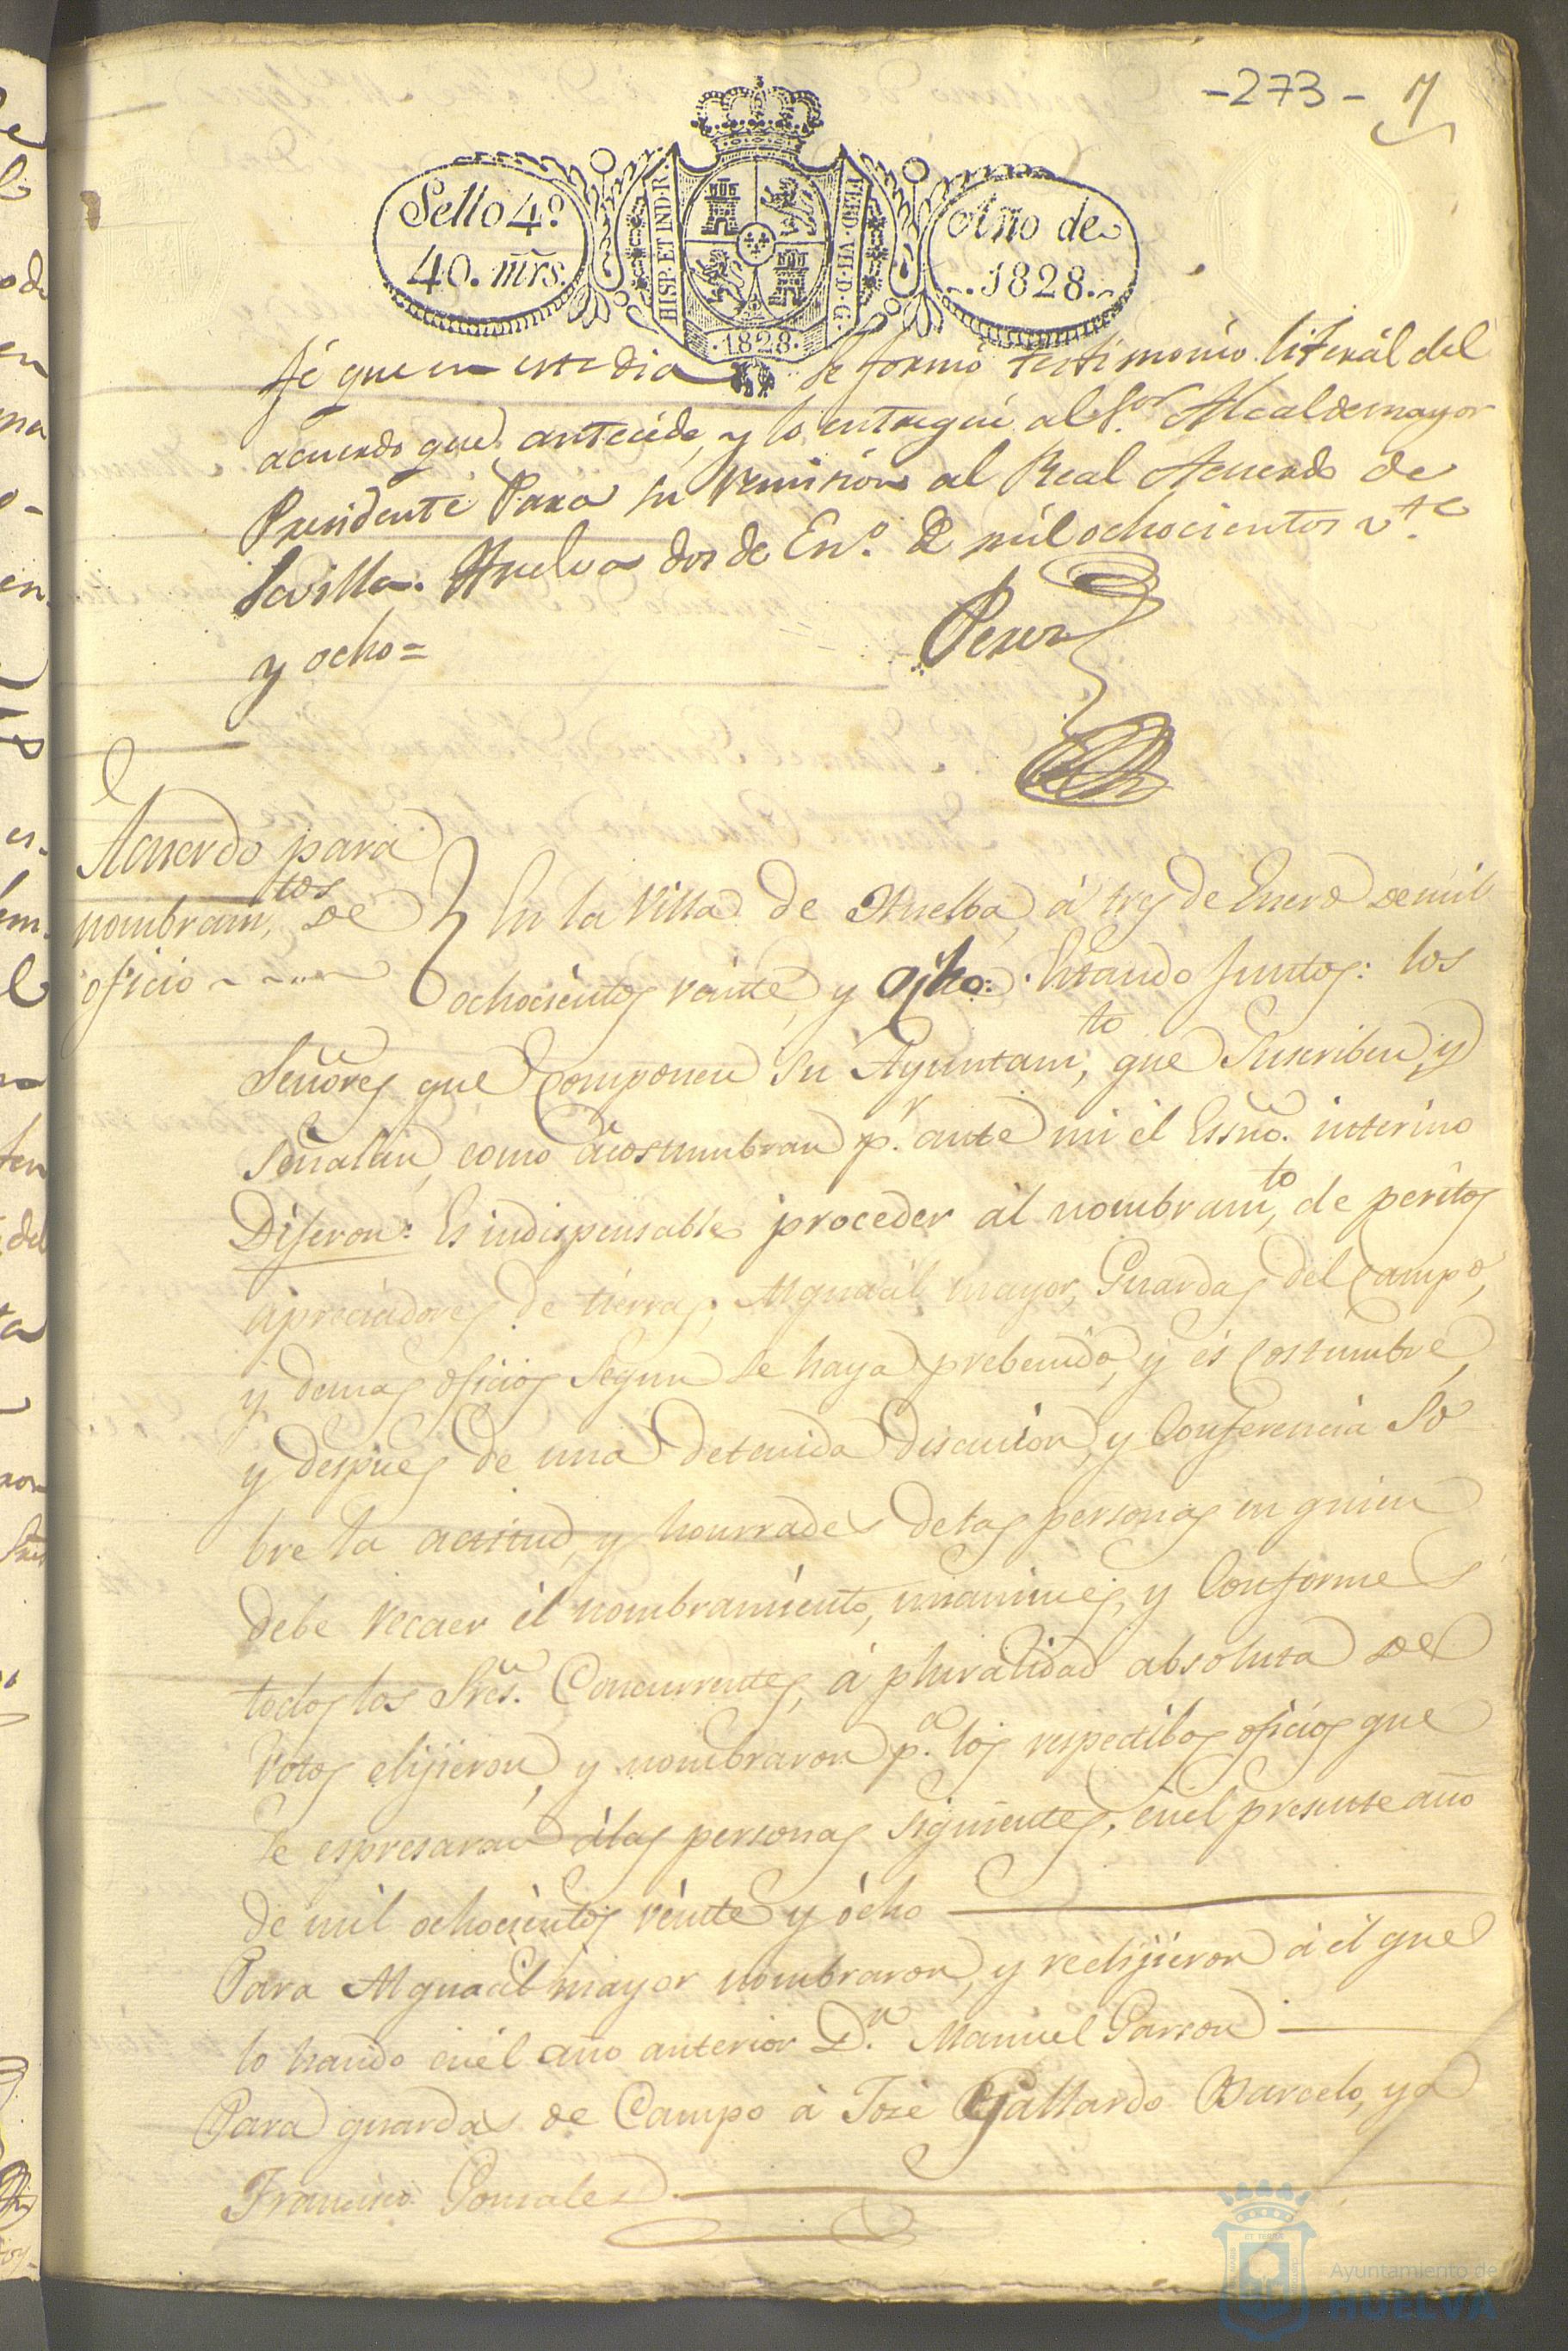 -273- 7
Sello 4º.
40. mrs.
HISP. ET IND. R.
FERD. VII. D. G.
.1828.
Año de
1828.
fé que en este dia se formó testimonio literál del
acuerdo que antecéde, y lo entregué al Sor. Alcalde mayor
Presidente Para su remision al Real Acuerdo de
Sevilla. Huelva dos de Enº. de mil ochocientos vte.
y ocho=
Perez
Acuerdo para
nombramtos. de
oficio
En la Villa de Huelba, á tres de Enero de mil
ochocientos veinte, y ojho: Estando Juntos: los
Señores que Componen su Ayuntamto, que Suscriben, y
Señalan, como acostumbran pr. ante mi el Essno. interino
Dijeron: Es indispensable proceder al nombramto, de peritos
apreciadores de tierras, Alguacil mayor, Guardas del Campo,
y demas oficios segun se haya prebenido, y es Costumbre,
y despues de una detenida discucion, y Conferencia So
bre la actitud, y honrrades de las personas en quien
debe recaer él nombramiento, unanimes, y Conformes
todos los Sres. Concurrentes, á pluralidad absoluta de
Votos elijieron, y nombraron pa. los respectibos oficios que
se espresaran á las personas siguientes, en el presente año
de mil ochocientos veinte y ócho
Para Alguacil mayor nombraron, y reelijieron á él que
lo hasido en él año anterior Dn. Manuel Garzon
Para guardas de Campo á José Gallardo Barcelo, y á
Francisco Gonsales.
Ayuntamiento de
HUELVA